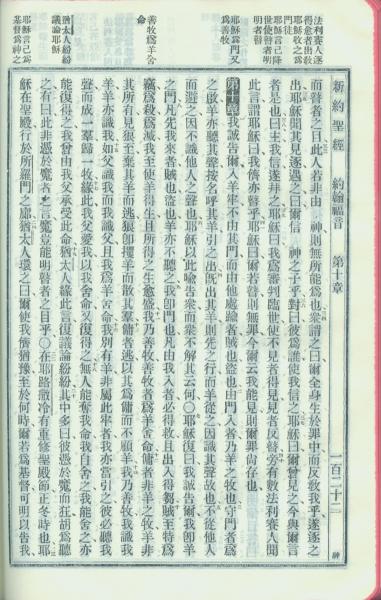 新約聖經 約翰福音 第十章 一百二十二 神
法利賽人逐
得愈者出敎
耶穌收之爲
門徒
耶穌言己降
世使瞽者明
明者瞽
耶穌爲門又
爲善牧
善牧爲羊舍
命
猶太人紛紛
議論耶穌
耶穌言己爲
基督爲神之
而瞽者之目此人若非由　神則無所能爲也衆謂之曰爾全身生於罪中而反敎我乎遂逐之
出耶穌聞其見逐遇之曰爾信　神之子乎對曰彼爲誰使我信之耶穌曰爾曾見之今與爾言
者是也曰主我信遂拜之耶穌曰我爲審判臨世使不見者得見見者反瞽旁有數法利賽人聞
此言謂耶穌曰我儕亦瞽乎耶穌曰爾若瞽則無罪今爾云我能見則爾罪尙存也
第十章 我誠告爾入羊牢不由其門而由他處踰者賊也盜也由門入者乃羊之牧也守門者爲
之啟羊亦聽其聲按名呼其羊引之出旣出其羊則先之行而羊從之因識其聲故也不從他人
而避之因不識他人之聲也耶穌以此喩告衆而衆不解其云何〇耶穌復曰我誠告爾我卽羊
之門凡先我來者賊也盜也羊亦不聽之我卽門也凡由我入者必得救且出入得芻賊至特爲
竊爲殺爲滅我至使羊得生且所得之生愈盛也我乃善牧善牧者爲羊舍命傭者非羊之牧羊非
其所有見狼至棄其羊而逃狼卽攫羊而散其羣傭者逃以其爲傭而不顧羊我乃善牧我識我
羊羊亦識我如父識我而我識父且我爲羊舍命我別有羊非屬此牢者我亦當引之彼必聽我
聲而成一羣歸一牧緣此我父愛我以我舍命又復得之無人能奪我命我自舍之我能舍之亦
能復得之我曾由我父承受此命猶太人緣此言復議論紛紛其中多曰彼憑於魔而狂胡爲聽
之有曰此非憑於魔者之言魔豈能明瞽者之目乎〇在耶路撒冷有重修聖殿節正冬時也耶
穌在聖殿行於所羅門之廊猶太人環之曰爾使我儕猶豫至於何時爾若爲基督可明以告我